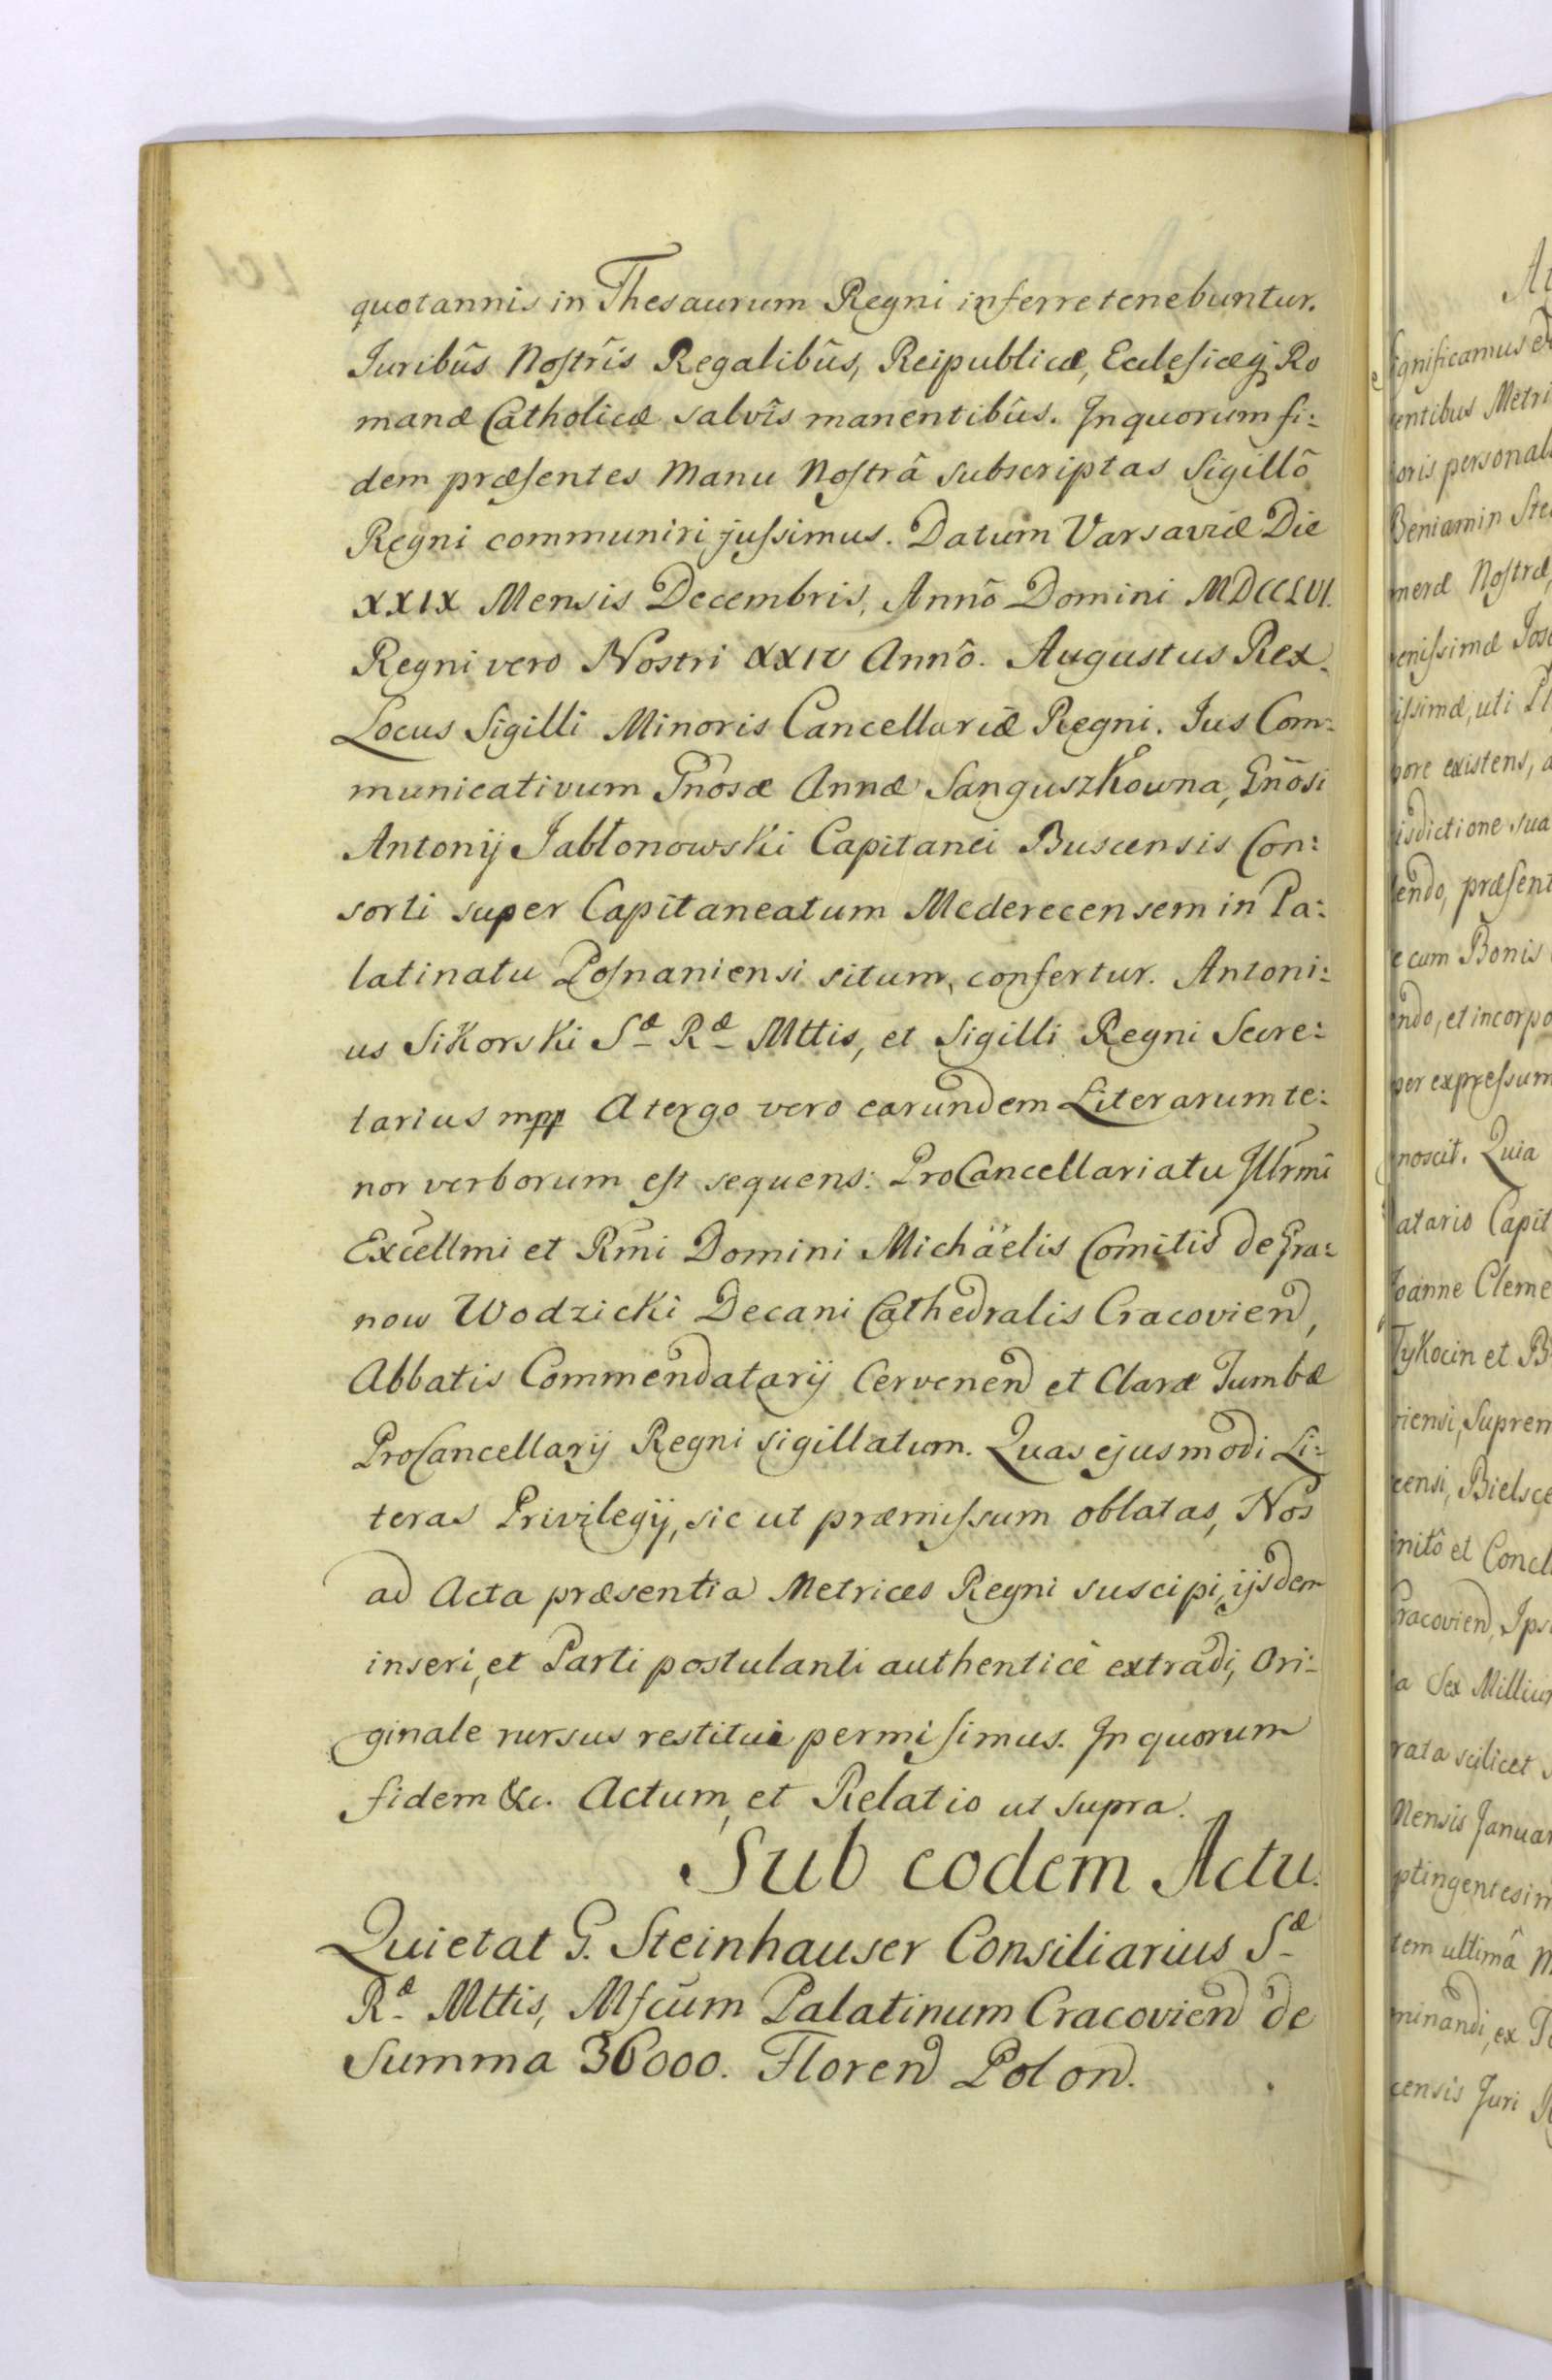 quotannis in Thesaurum Regni inferre tenebuntur.
Juribûs Nostrîs Regalibûs, Reipublicæ, Ecclesiæq; Ro
manæ Catholicæ salvîs manentibûs. In quorum fi:
dem præsentes Manu Nostrâ subscriptas Sigillô
Regni communiri jussimus. Datum Varsaviæ Die
XXIX Mensis Decembris, Annô Domini MDCCLVI.
Regni vero Nostri XXIV Annô. Augustus Rex.
Locus Sigilli Minoris Cancellariæ Regni. Jus Com:
municativum Gñosæ Annæ Sanguszkowna, Gñosi
Antonij Jabłonowski Capitanei Buscensis Con:
sorti super Capitaneatum Mederecensem in Pa:
latinatu Posnaniensi situm, confertur. Antoni:
us Sikorski Sæ Ræ Mttis, et Sigilli Regni Secre:
tarius mpp A tergo vero earundem Literarum te:
nor verborum est sequens: ProCancellariatu Jllrmi
Excellmi et Rmi Domini Michäelis Comitis de Gra:
now Wodzicki Decani Cathedralis Cracovien̄,
Abbatis Commendatarij Cervenen̄ et Claræ Tumbæ
ProCancellarij Regni sigillatum. Quas ejusmodi Li:
teras Privilegij, sic ut præmissum oblatas, Nos
ad Acta præsentia Metrices Regni suscipi, ijsdem
inseri, et Parti postulanti authenticè extradi, Ori:
ginale rursus restitui permisimus. In quorum
fidem &c. Actum, et Relatio ut supra.
Sub eodem Actu.
Quietat G. Steinhauser Consiliarius Sæ
Ræ Mttis, Mfcum Palatinum Cracovien̄ de
Summa 36000. Floren̄ Polon̄.
At
Significamus
entibus Metri
oris personal
Beniamin Ste
meræ Nostræ,
enissimæ Jos
issimæ, uti Pl
pore existens, a
isdictione sua
endo, præsent
e cum Bonis
ndo, et incorpo
per expressum
gnoscit. Quia
latario Capit
Joanne Cleme
Tykocin et B
riensi, Suprem
censi, Bielsce
initô et Concl
Cracovien̄, Ips
a Sex Milliu
rata scilicet
Mensis Januar
ptingentesim
tem ultimâ M
minandi, ex
censis Juri